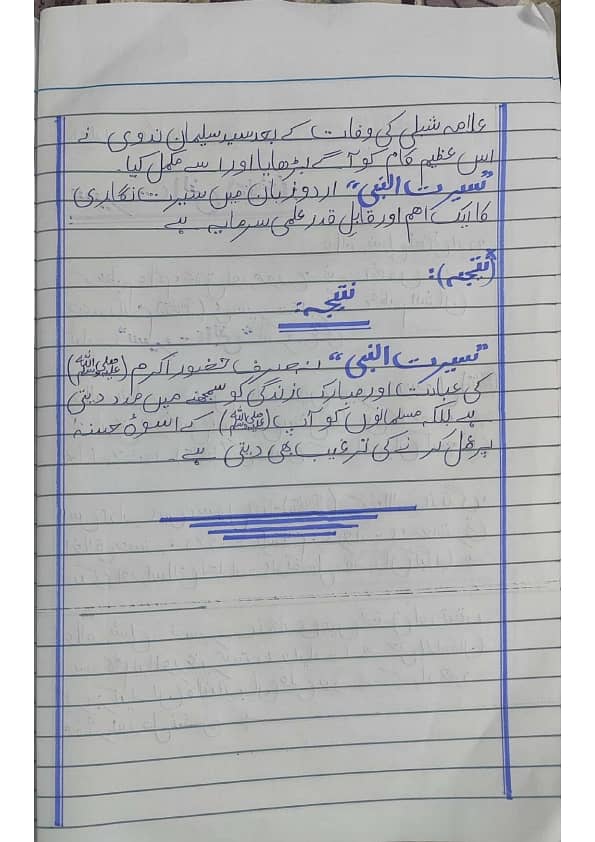 علامہ شبلی کی وفات کے بعد سید سلیمان ندوی نے
اس عظیم کام کو آگے بڑھایا اور اسے مکمل کیا۔
"سیرت النبی" اردو زبان میں سیرت نگاری
کا ایک اہم اور قابل قدر علمی سرمایہ ہے
(نتیجہ):
نتیجہ:
"سیرت النبی" نہ صرف حضور اکرم (ﷺ)
کی عبادت اور مبارک زندگی کو سمجھنے میں مدد دیتی
ہے بلکہ مسلمانوں کو آپ (ﷺ) کے اسوۂ حسنہ
پر عمل کرنے کی ترغیب بھی دیتی ہے۔